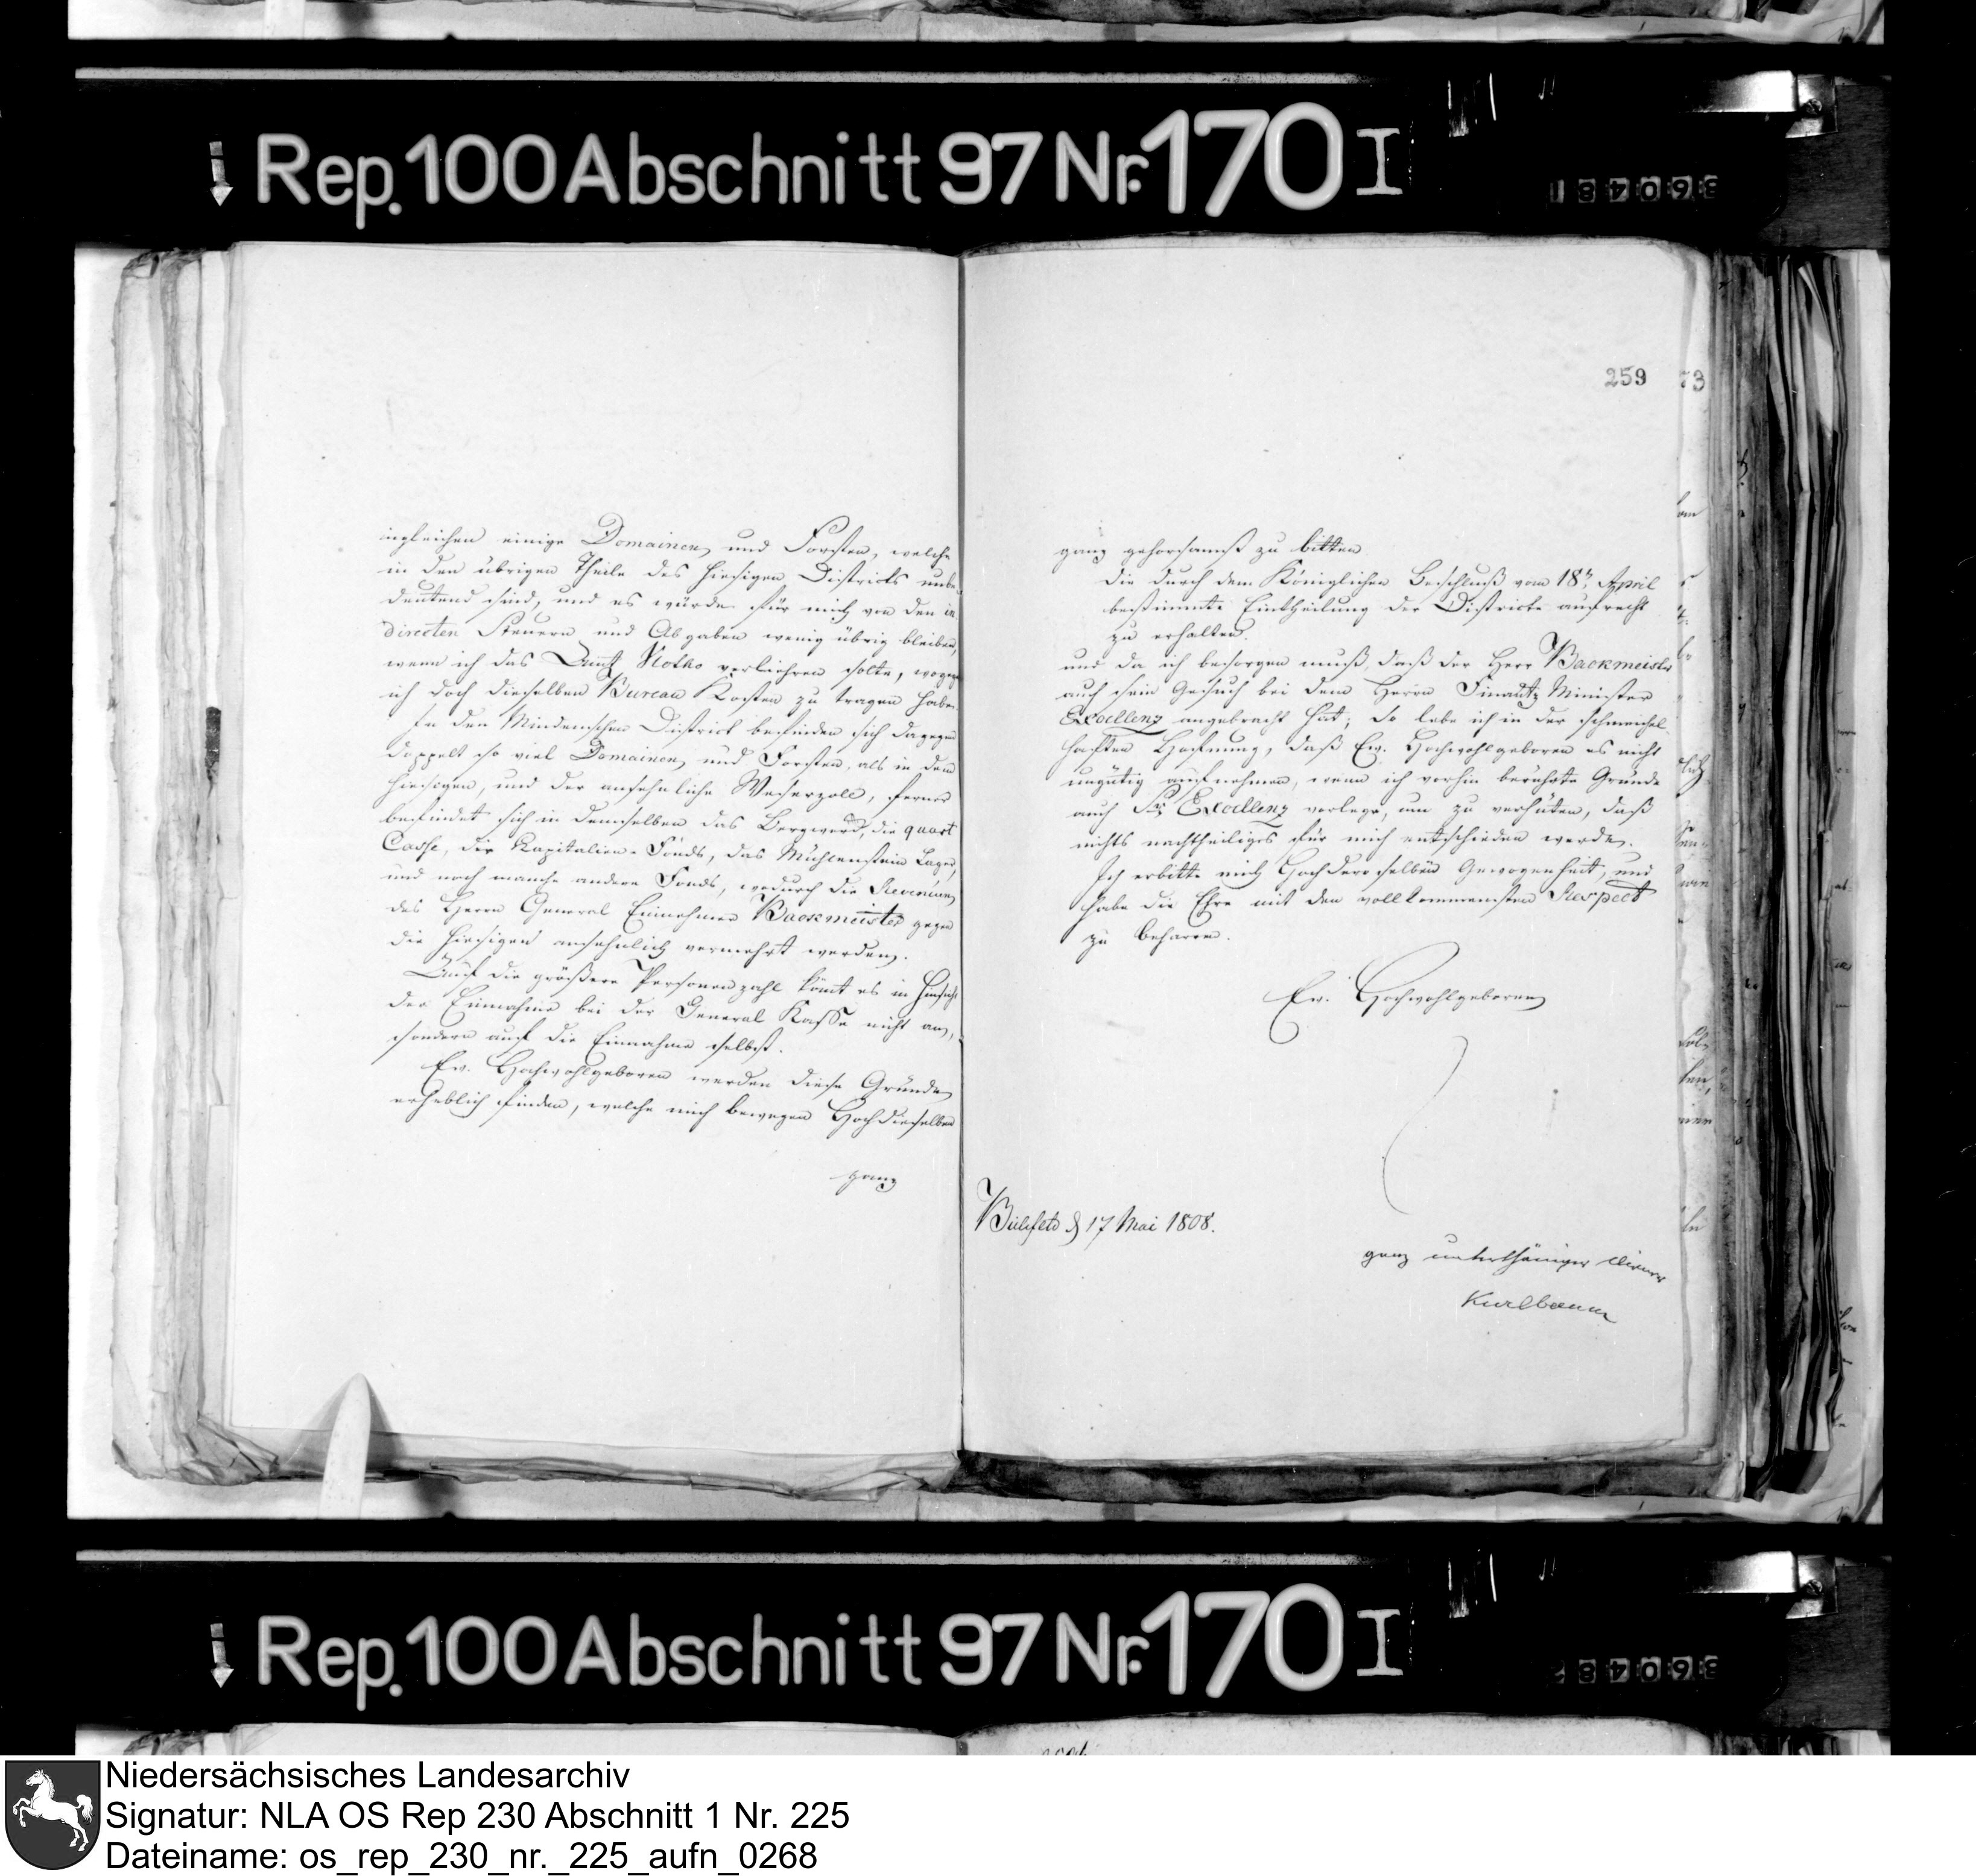 Rep. 100 Abschnitt 97 Nr. 170 I
360481
259
73
ingleichen einige Domainen und Forsten, welche
in den übrigen Theile des hiesigen Districts unbe-
deutend sind, und es würde für mich von den in
directen Steuern und Abgaben wenig übrig bleiben,
wenn ich das Amt Vlotho verliehren solte, wogegen
ich doch dieselben Bureau Kosten zu tragen habe.
In den Mindenschen District befinden sich dagegen
doppelt so viel Domainen und Forsten, als in dem
hiesigen, und der ansehnliche Weserzoll, ferner
befindet sich in demselben das Bergwerck, die quart
Casse, die Kapitalien-Fonds, das Mühlenstein Lager,
und noch manche andere Fonds, wodurch die Revenüen
des Herrn General Einnehmer Backmeister gegen
die hiesigen ansehnlich vermehrt werden.
Auf die größere Personenzahl kömt es in Hinsicht
der Einnahme bei der General Kasse nicht an,
sondern auf die Einnahme selbst.
Ew. Hochwohlgeboren werden diese Gründe
erheblich finden, welche mich bewegen Hochdieselben
ganz
ganz gehorsamst zu bitten
die durch dem Königlichen Beschluß vom 18t April
bestimmte Eintheilung der Districte aufrecht
zu erhalten.
und da ich besorgen muß, daß der Herr Backmeister
auch sein Gesuch bei dem Herrn Finantz Minister
Excellenz angebracht hat; so lebe ich in der schmeichel-
haften Hofnung, daß Ew. Hochwohlgeboren es nicht
ungütig aufnehmen, wenn ich vorhin berührte Gründe
auch Sr Excellenz vorlege, um zu verhüten, daß
nichts nachtheiliges für mich entschieden werde.
Ich erbitte mich Hochderoselben Gewogenheit, und
habe die Ehre mit dem vollkommensten Respect
zu beharren.
Ew. Hochwohlgeboren
Bielefeld d 17 Mai 1808.
ganz unterthäniger Diener
Kurlbaum
Rep. 100 Abschnitt 97 Nr. 170 I
36048
Niedersächsisches Landesarchiv
Signatur: NLA OS Rep 230 Abschnitt 1 Nr. 225
Dateiname: os_rep_230_nr._225_aufn_0268